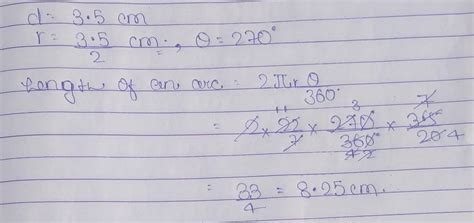 d = 3.5 cm
r = 3.5/2 cm., θ = 270°
Length of an arc = 2πrθ/360°
= 2 × 22/7 × 270°/360° × 35/20
= 33/4 = 8.25 cm.